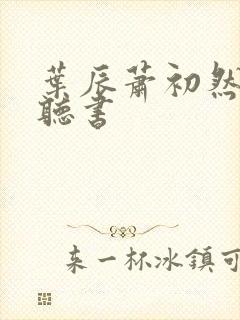 葉辰蕭初然
聽書
来一杯冰鎮可